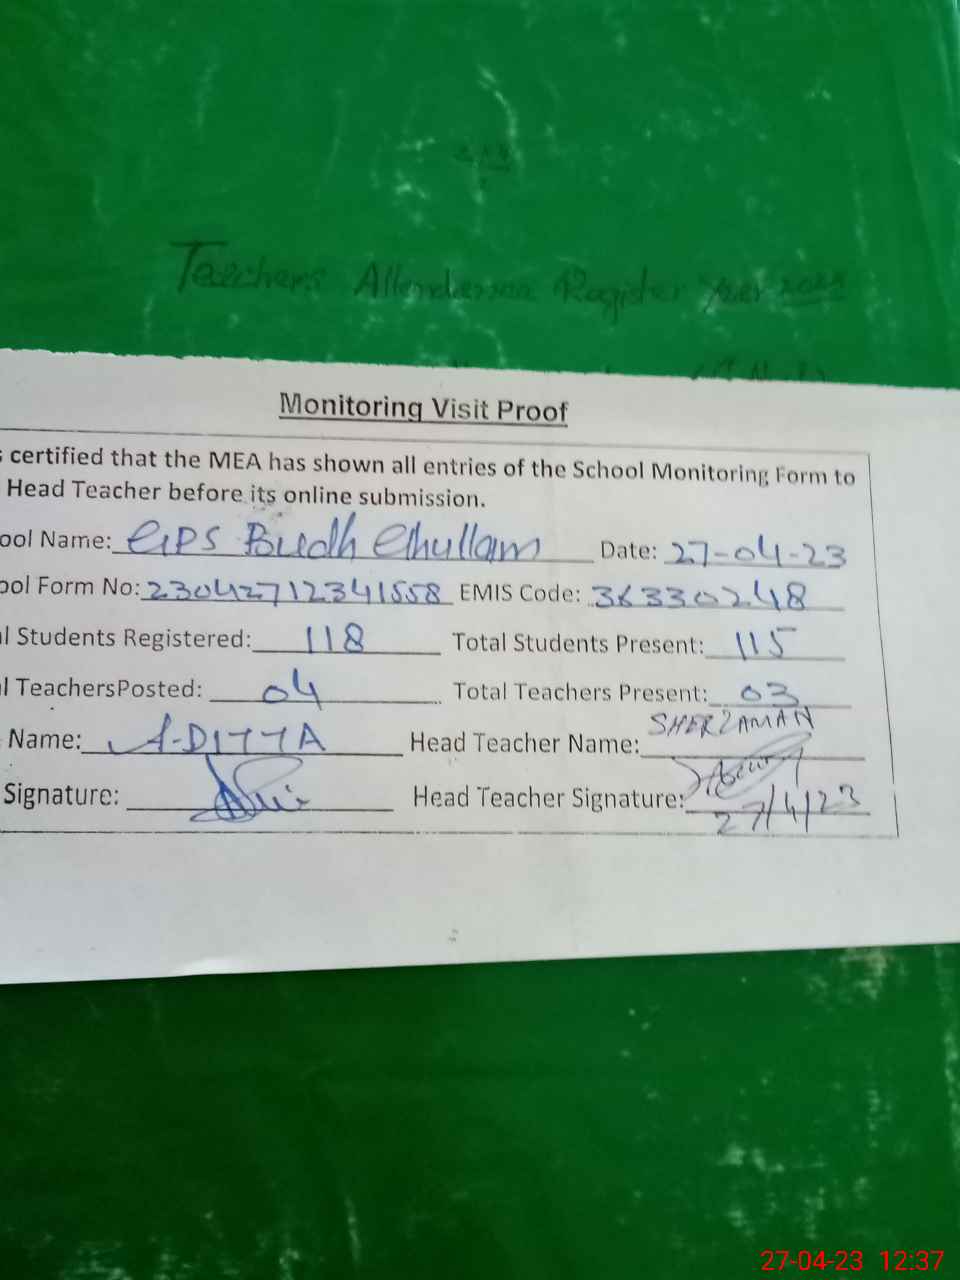 Teachers Attendance Register year
Monitoring Visit Proof
certified that the MEA has shown all entries of the School Monitoring Form to
Head Teacher before its online submission.
ool Name: GPS Budh Ghullam Date: 27-04-23
ool Form No: 23042712341558 EMIS Code: 36330248
l Students Registered: 118 Total Students Present: 115
l TeachersPosted: 04 Total Teachers Present: 03
Name: A-DITTA Head Teacher Name: SHERZAMAN
Signature: Head Teacher Signature:
27/4/23
27-04-23 12:37